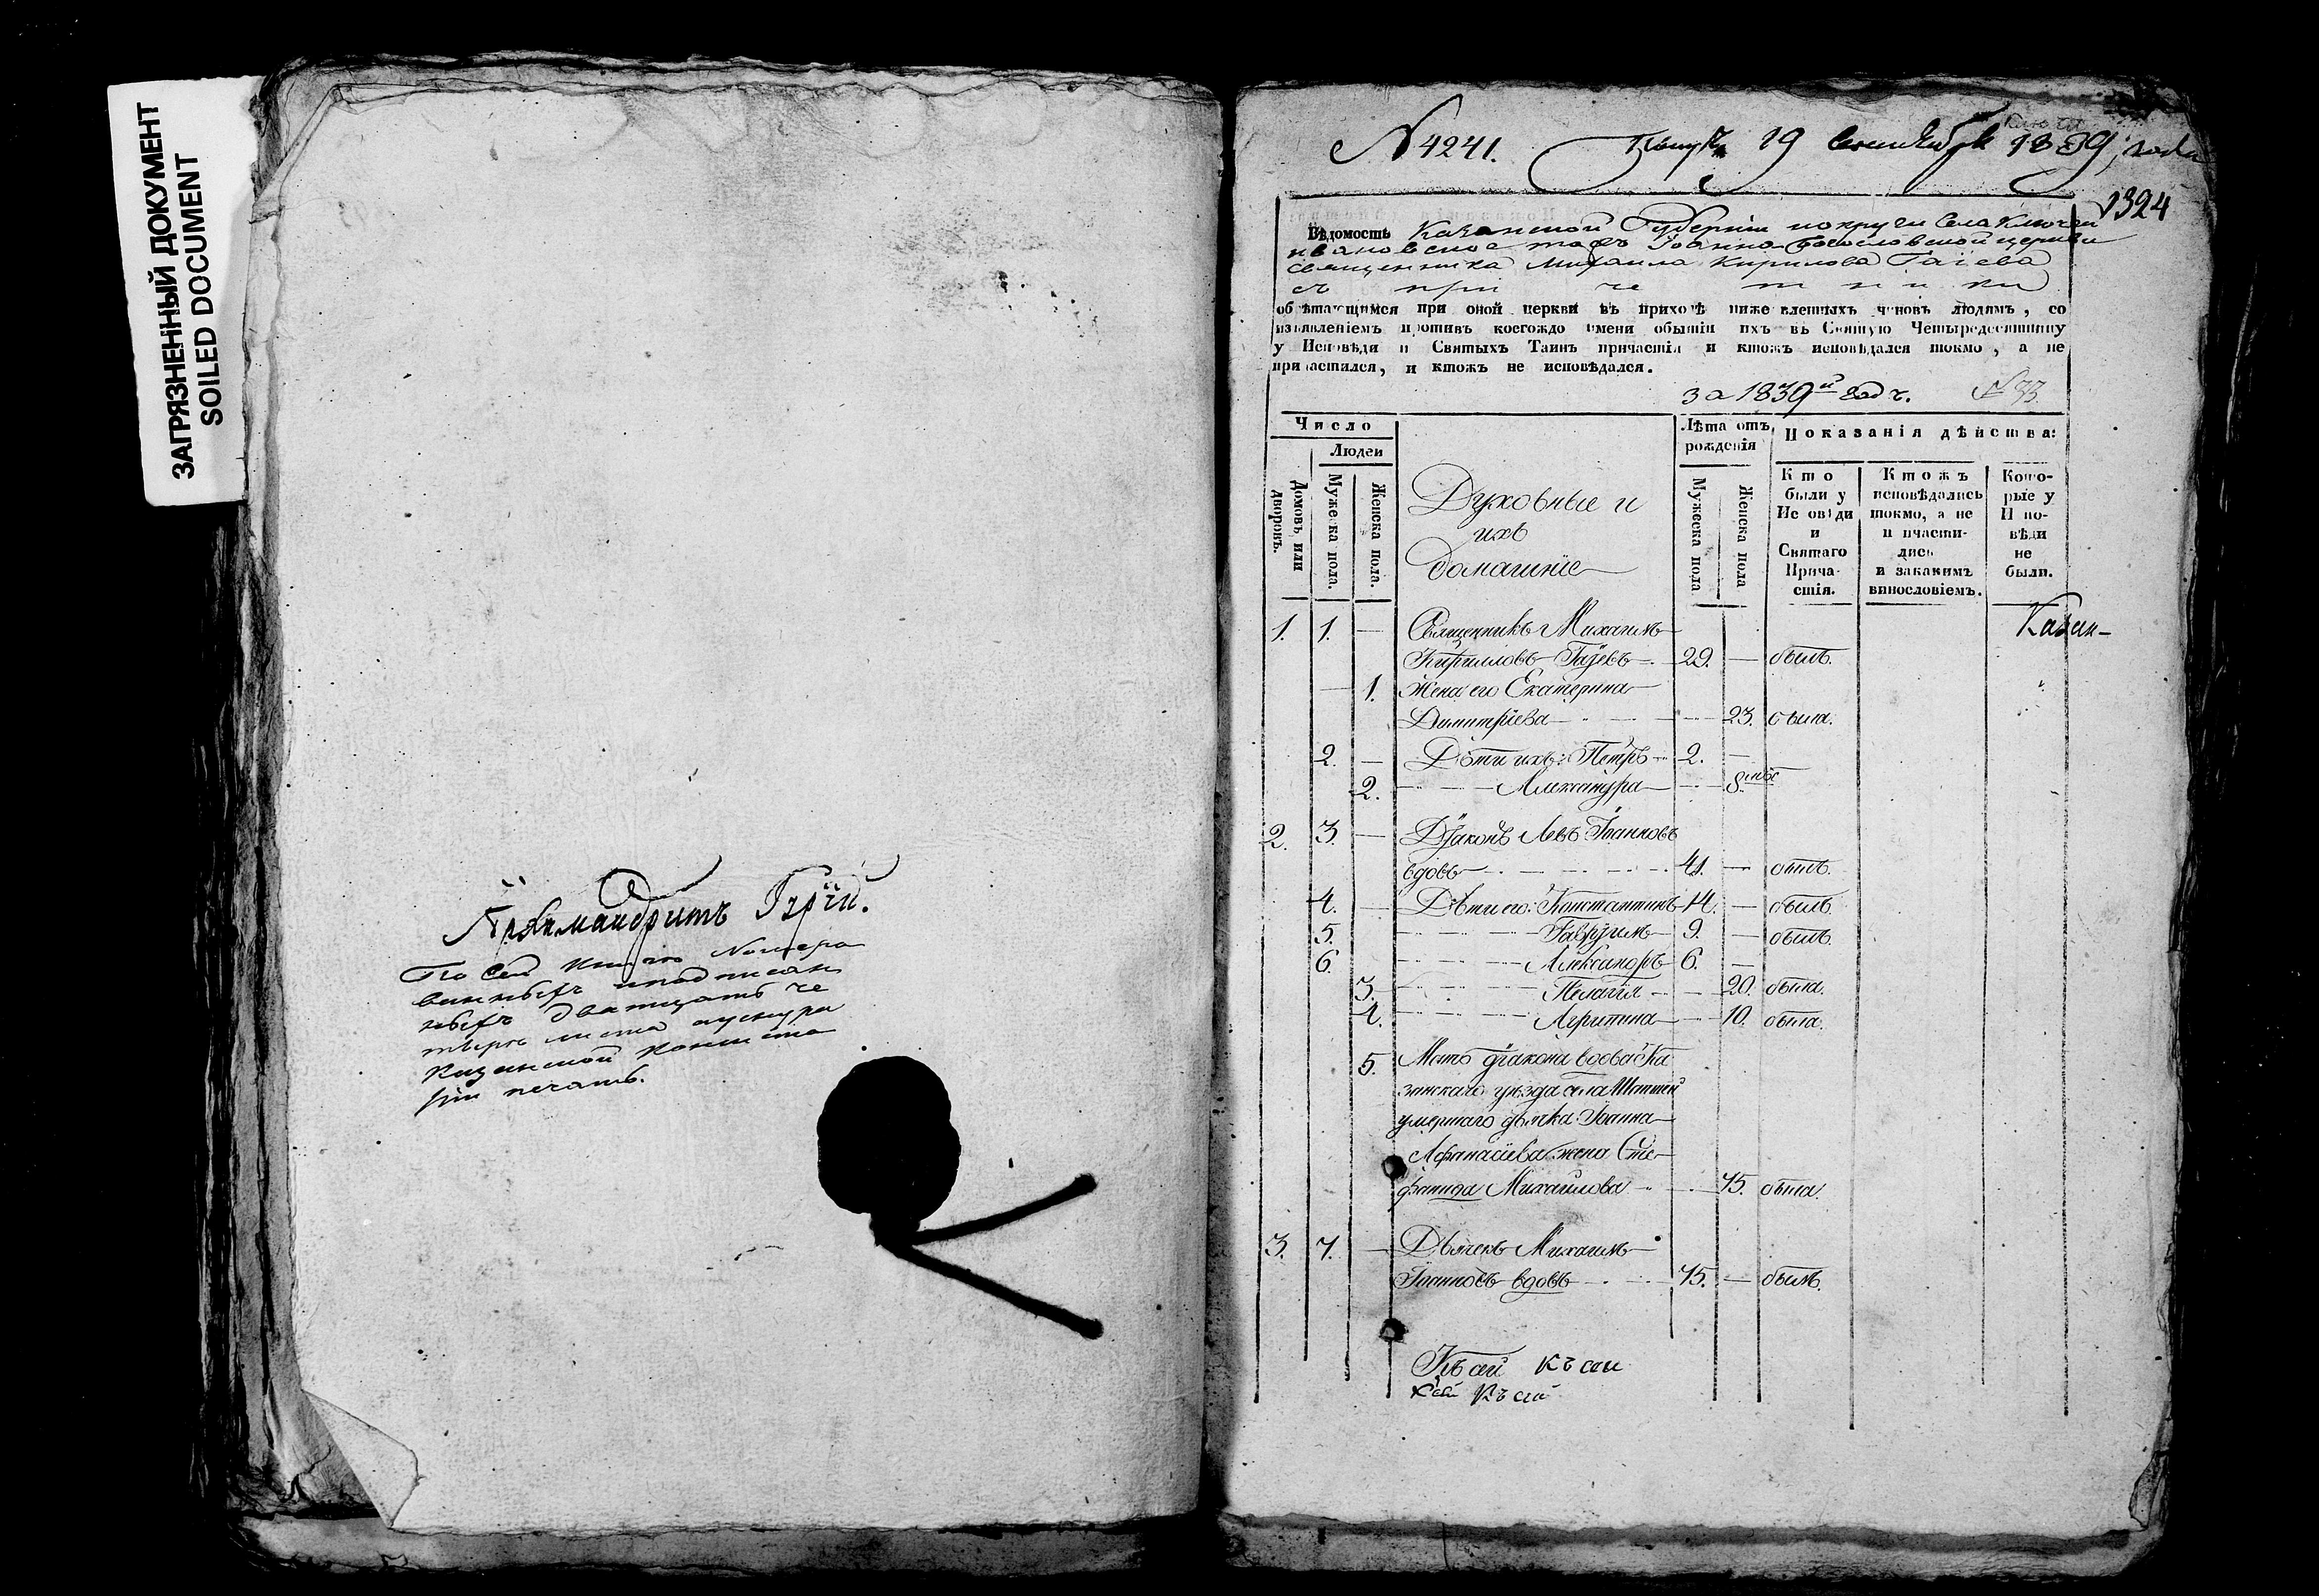 ЗАГРЯЗНЕННЫЙ ДОКУМЕНТ
SOILED DOCUMENT
Архимандритъ Гурій.
По сей книгѣ Нумеро
ванныхъ иподписан
ныхъ дватцать че
тыре листа
Казанской Консисто
ріи печать.
N 4241. 19 Сентября 1839, года
1324
Вѣдомость Казанской Губерніи округи Села Ключей
ивановское тожъ Іоанно Богословской церкви
священника Михаила Кирилова Гаіева
съ при че т ни ки
обрѣтающимся при оной церкви въ приходѣ ниже влетныхъ чиновъ людямъ, со
изъявленіемъ противъ коегождо имени бытіи ихъ въ Святую Четыредесятницу
у Исповѣди и Святыхъ Таинъ причастія и ктожъ исповѣдался токмо, а не
причастился, и ктожъ не исповѣдался.
за 1839й Годъ. N 33.
Число
Людеи
Лѣта отъ рожденія
Показанія дѣиства:
Домовъ или дворовъ.
Мужеска пола.
Женска пола.
Духовные и
ихъ
домашніе
Мужеска пола
Женска пола
Кто были у Исповѣди и Святаго Причастія.
Ктожъ исповѣдались токмо, а не причастились и закакимъ винословіемъ.
Которые у Исповѣди не были.
1. 1. — Священникъ Михаилъ
Казан-
Кирилловъ Гаіевъ 29. — былъ.
— 1. Жена его Екатерина
Димитріева 23. была.
2. — Дѣти ихъ: Петръ 2. —
2. Александра 8. мѣс
2. 3. — Діаконъ Левъ Іоанновъ
вдовъ 41. — былъ.
4. — Дѣти его: Константинъ 14. — былъ.
5. Гавріилъ 9. — былъ.
6. Александръ 6. —
3. Пелагія 20. была.
4. Агрипина 10. была.
5. Мать діакона вдова Ка
занскаго уѣзда села
умершаго дьячка Іоанна
Афанасіева жена Сте-
фанида Михайлова 75. была.
3. 7. — Дьячекъ Михаилъ
Іоанновъ вдовъ 75. — былъ.
Къ сей къ сеи
къ сей